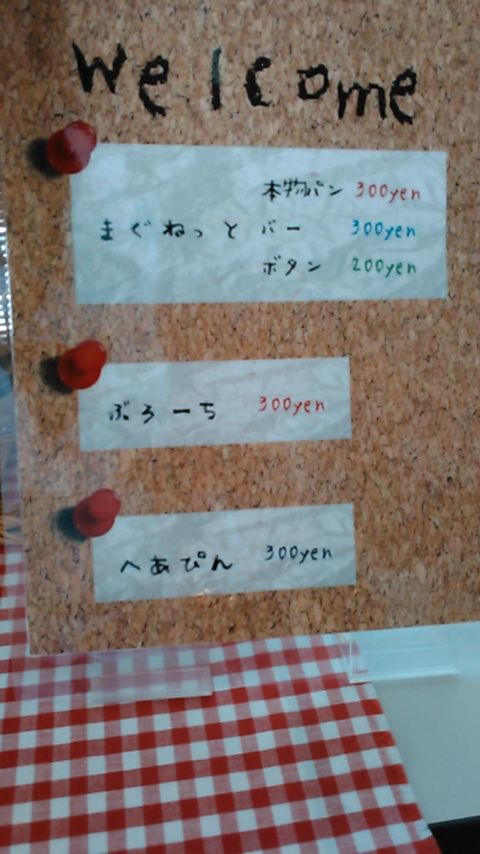 Welcome
本物パン 300yen
まぐねっと バー 300yen
ボタン 200yen
ぶろーち 300yen
へあぴん 300yen